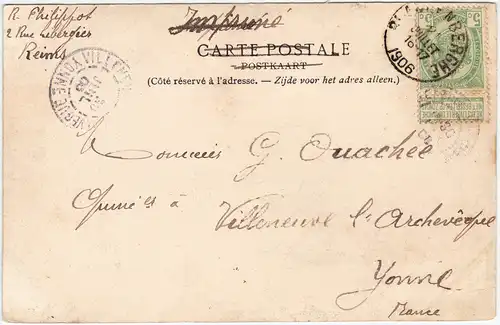 R. Philippot
2 Rue Levergier
Reims
Imprimé
CARTE POSTALE
POSTKAART
(Côté réservé à l'adresse. - Zijde voor het adres alleen.)
BLANKENBERGHE
5 5
1906
Monsieur G. Ouachée
à Villeneuve l'Archevêque
Yonne
France